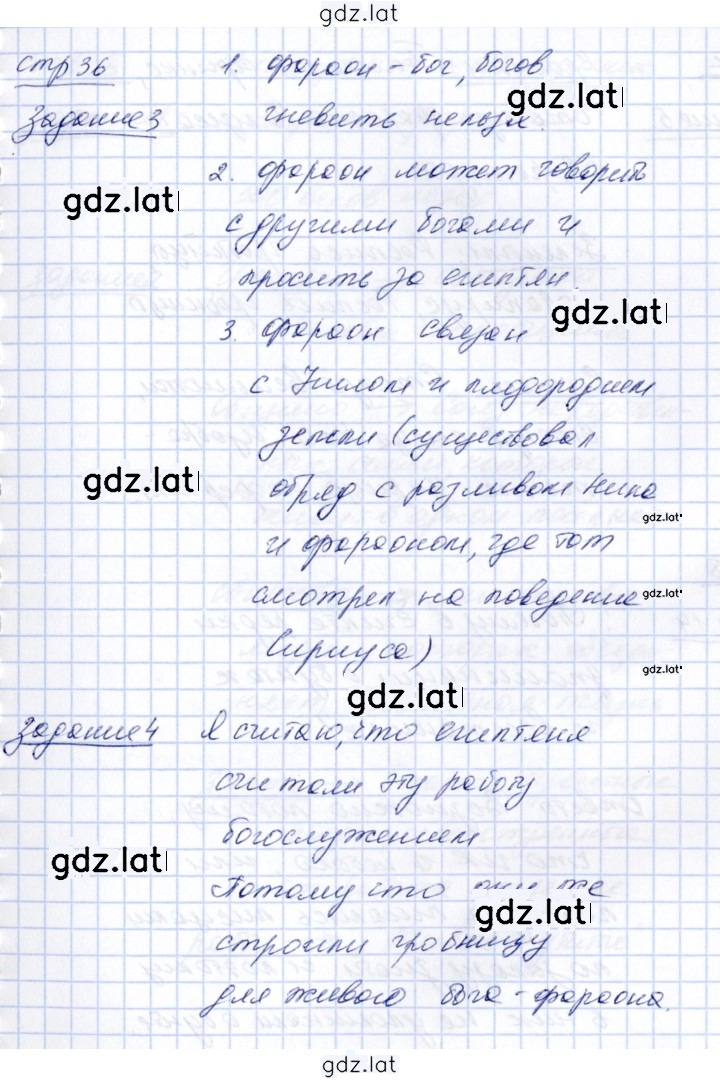 gdz.lat
стр 36
1. фараон - бог, богов
gdz.lat
Задание 3
гневить нельзя.
2. фараон может говорить
gdz.lat
с другими богами и
просить за египтян.
gdz.lat
3. фараон связан
с Нилом и плодородием
земли (существовал
gdz.lat
обряд с разливом Нила
gdz.lat
и фараоном, где тот
смотрел на поведение
gdz.lat
Сириуса)
gdz.lat
gdz.lat
Задание 4
Я считаю, что египтяне
считали эту работу
богослужением
gdz.lat
Потому что они же
gdz.lat
строили гробницу
для живого бога - фараона.
gdz.lat